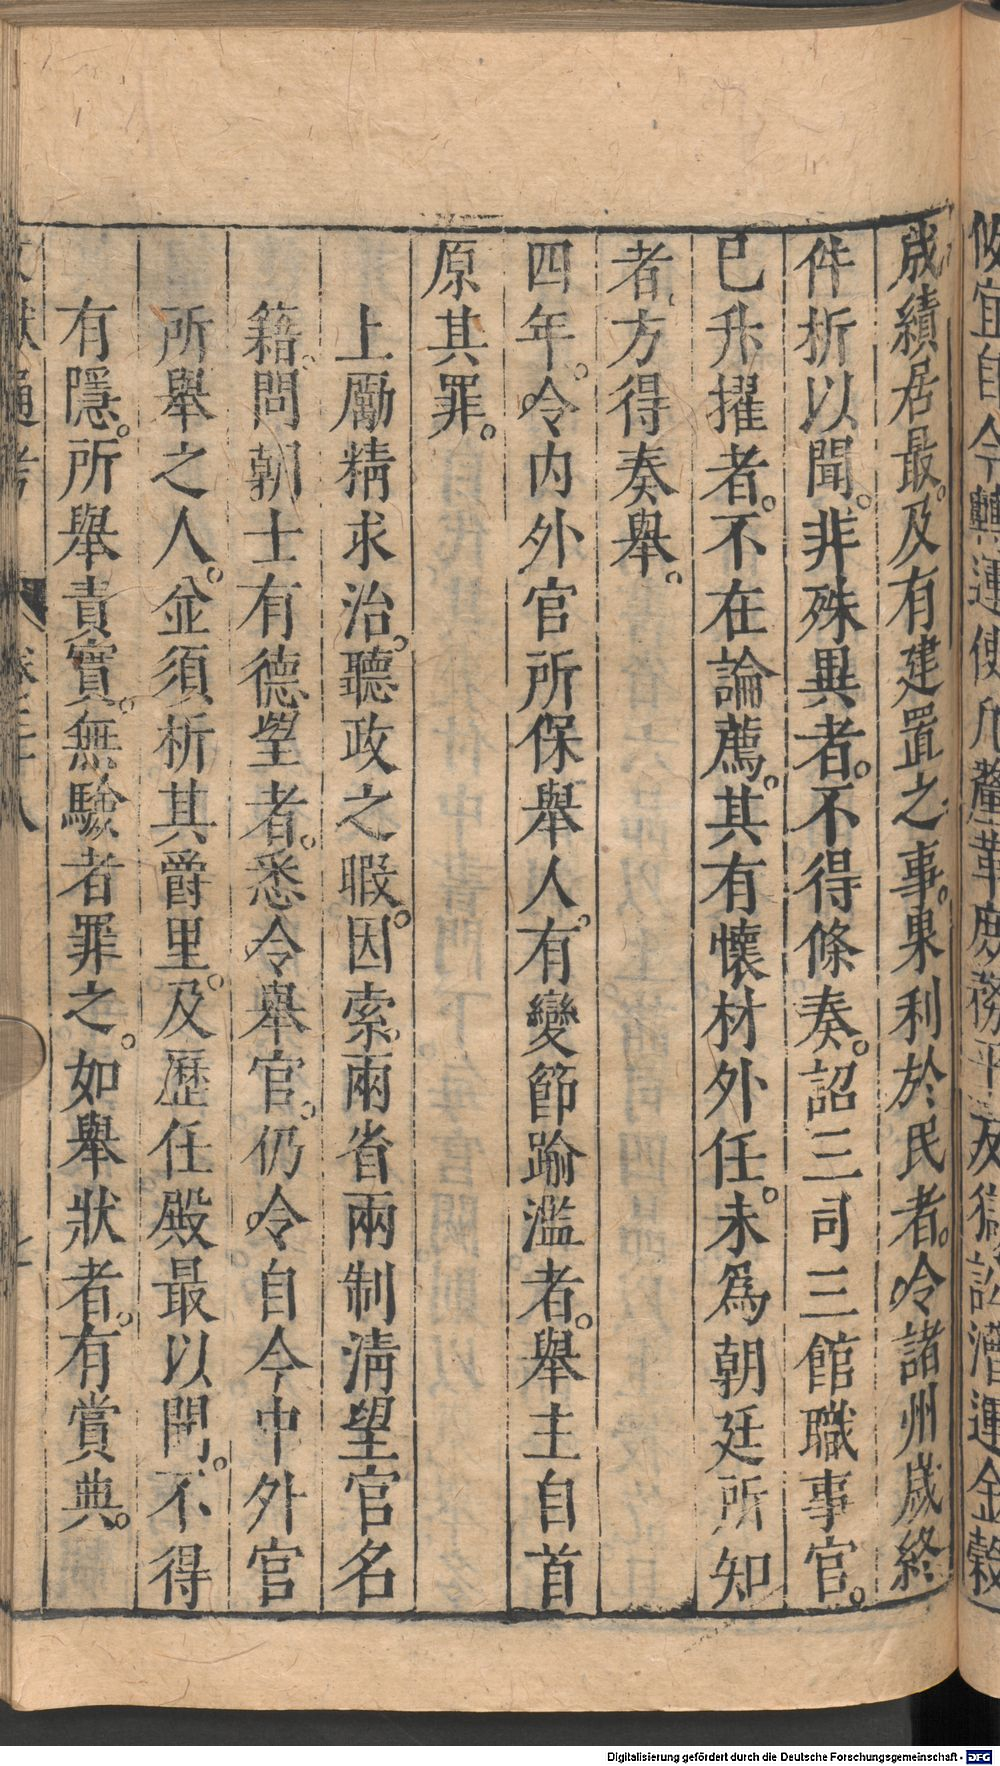 條宜自今轉運使凡釐革庶務平反獄訟漕運金穀
成績居最。及有建置之事。果利於民者。令諸州歲終
件折以聞。非殊異者。不得條奏。詔三司三館職事官。
已升擢者。不在論薦。其有懷材外任。未爲朝廷所知
者、方得奏舉。
四年。令内外官所保舉人。有變節踰濫者。舉主自首
原其罪。
上勵精求治。聽政之暇。因索兩省兩制淸望官名
籍。問朝士有德望者。悉令舉官。仍令自今中外官
所舉之人。並須析其爵里。及歷任殿最以聞。不得
有隱。所舉責實。無驗者罪之。如舉狀者。有賞典。
文獻通考 卷三十八 七
Digitalisierung gefördert durch die Deutsche Forschungsgemeinschaft - DFG